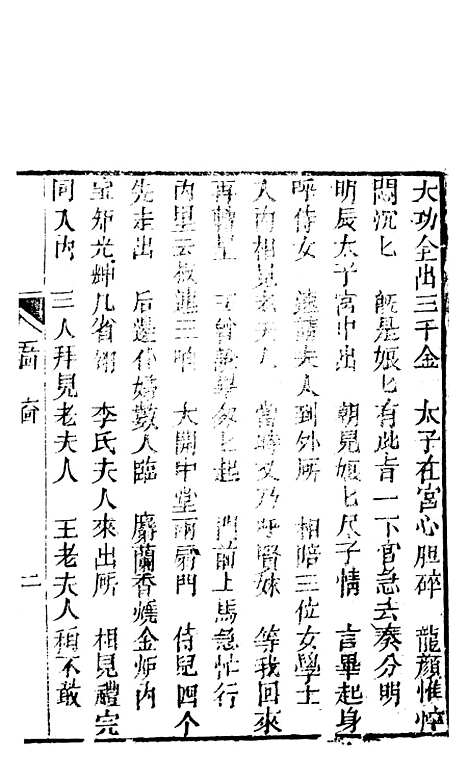 大功全出三千金　太子在宮心胆碎　龍顏惟悴
悶沉匕　既是娘匕有此旨　下官急去奏分明
明辰太子宮中出　朝見娘匕尺子情　言畢起身
呼侍女　遠 夫人到外所　相陪三位女學士
人內相見老夫人　當時又乃呼賢妹　等我回來
再轉呈　 匕起　門前上馬急忙行
內里云板連三响　大開中堂兩扇門　侍兒四个
先走出　后邊仆婦數人臨　麝蘭香燒金炉內
宝炉光輝几省 　李氏夫人來出所　相見禮完
同入內　三人拜見老夫人　王老夫人称不敢
二